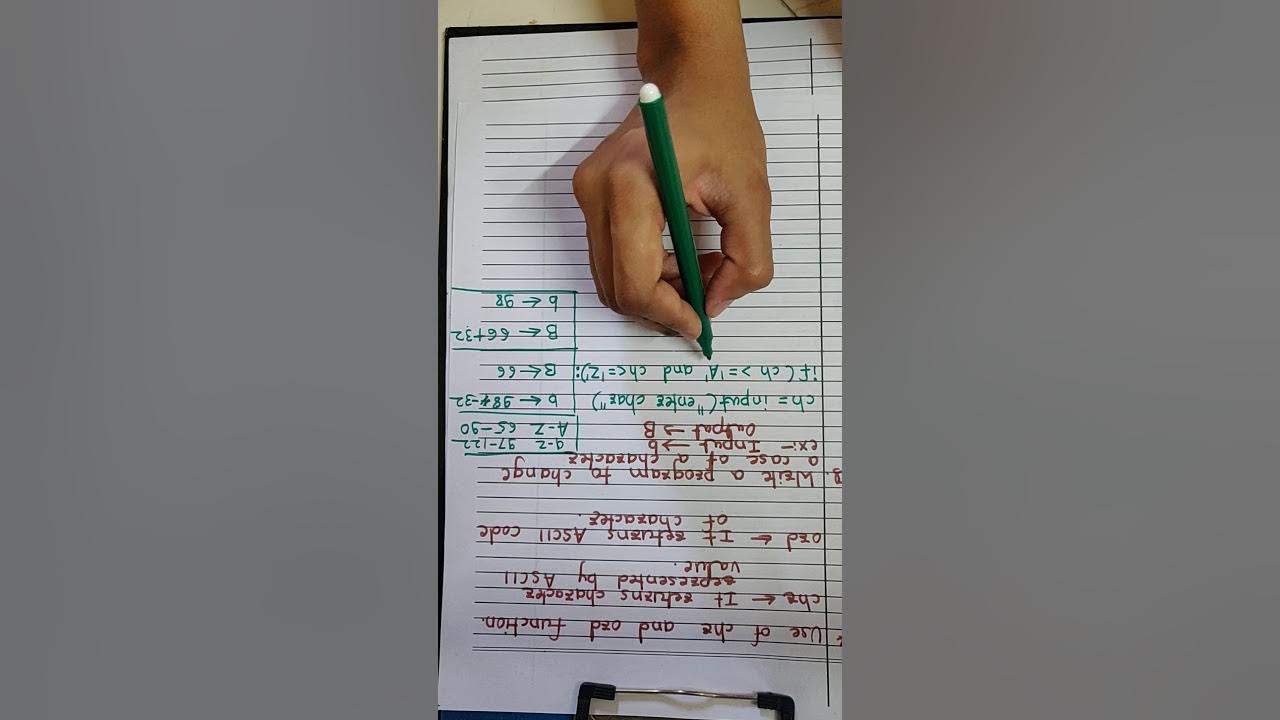 * Use of chr and ord function.
chr ← It returns character
represented by ASCII
value.
ord ← It returns ASCII code
of character.
Q. Write a program to change
a case of a character
ex:- Input → b
Output → B
a-z 97-122
A-Z 65-90
ch = input("enter char")
b ← 98-32
if (ch >= 'A' and ch<='Z'):
B ← 66
B ← 66+32
b ← 98